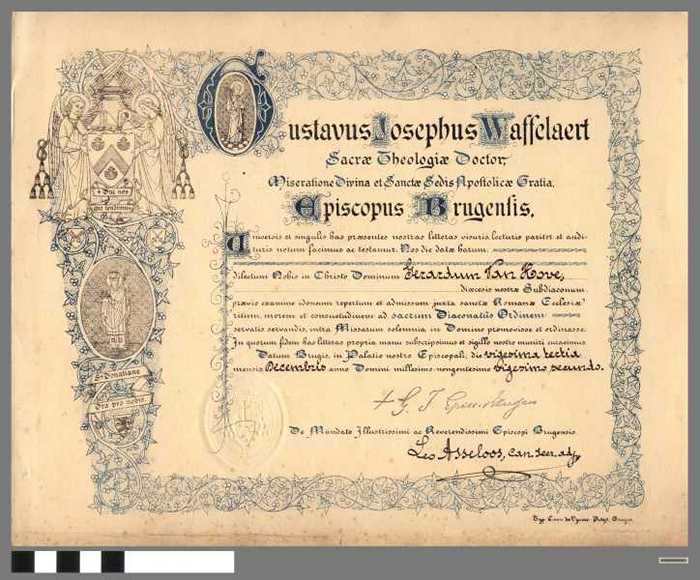 Gustavus Josephus Waffelaert
Sacræ Theologiæ Doctor,
Miseratione Divina et Sanctæ Sedis Apostolicæ Gratia,
Episcopus Brugensis.
Universis et singulis has præsentes nostras litteras visuris lecturis pariter et audi-
turis notum facimus ac testamur, Nos die datæ harum,
dilectum Nobis in Christo Dominum Gerardum Van Hove,
diœcesis nostræ Subdiaconum,
prævio examine idoneum repertum et admissum, juxta sanctæ Romanæ Ecclesiæ
ritum, morem et consuetudinem ad sacrum Diaconatûs Ordinem
servatis servandis, intra Missarum solemnia, in Domino promovisse et ordinasse.
In quorum fidem has litteras propria manu subscripsimus et sigillo nostro muniri curavimus.
Datum Brugis, in Palatio nostro Episcopali, die vigesima tertia
mensis Decembris anno Domini millesimo nongentesimo vigesimo secundo.
+ G. J. Episc. Brugen
De Mandato Illustrissimi ac Reverendissimi Episcopi Brugensis
Leo Asseloos, can. secr. adj.
S. Donatiane
Ora pro nobis